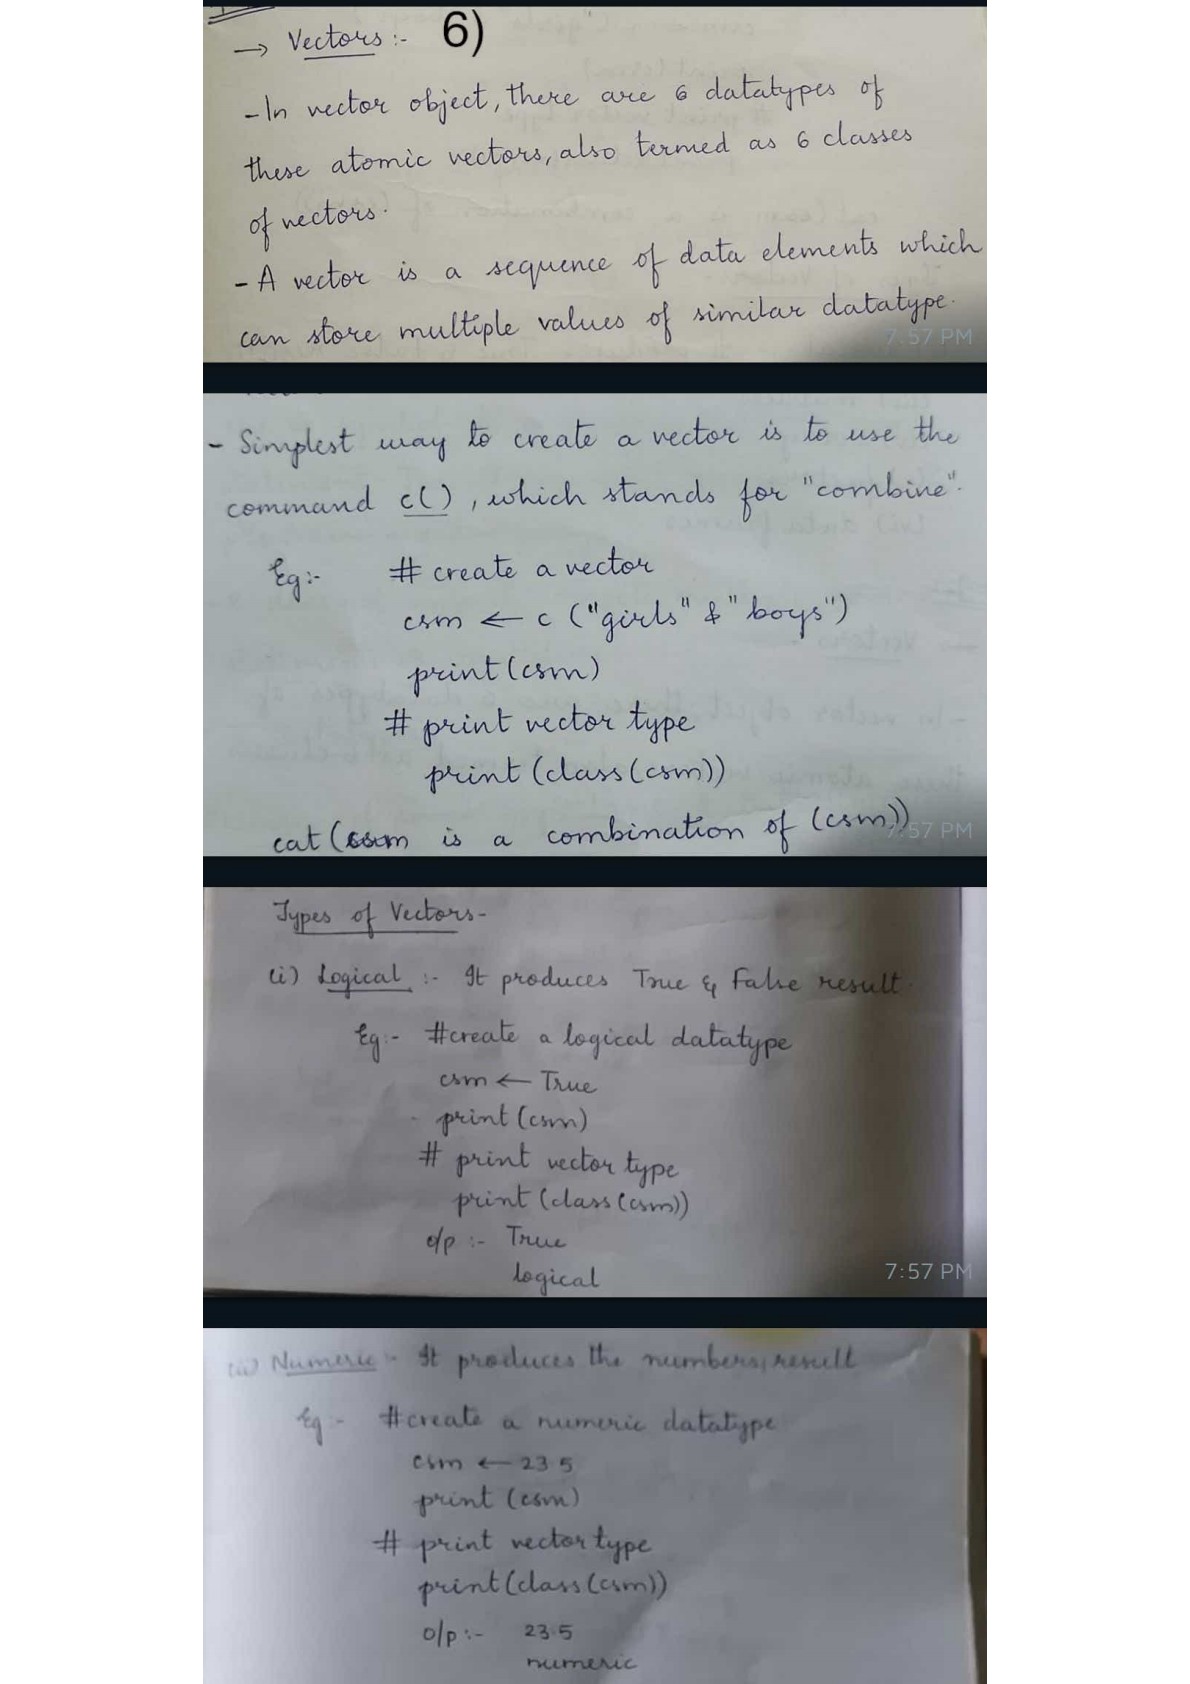 → Vectors :- 6)
- In vector object, there are 6 datatypes of
these atomic vectors, also termed as 6 classes
of vectors.
- A vector is a sequence of data elements which
can store multiple values of similar datatype.
7:57 PM
- Simplest way to create a vector is to use the
command c(), which stands for "combine".
Eg:- # create a vector
csm ← c ("girls" & "boys")
print (csm)
# print vector type
print (class (csm))
cat ( is a combination of (csm))
7:57 PM
Types of Vectors-
(i) Logical :- It produces True & False result.
Eg:- #create a logical datatype
csm ← True
print (csm)
# print vector type
print (class (csm))
o/p :- True
logical
7:57 PM
Numeric :- It produces the numbers result
Eg :- #create a numeric datatype
csm ← 23.5
print (csm)
# print vector type
print (class (csm))
o/p :- 23.5
numeric